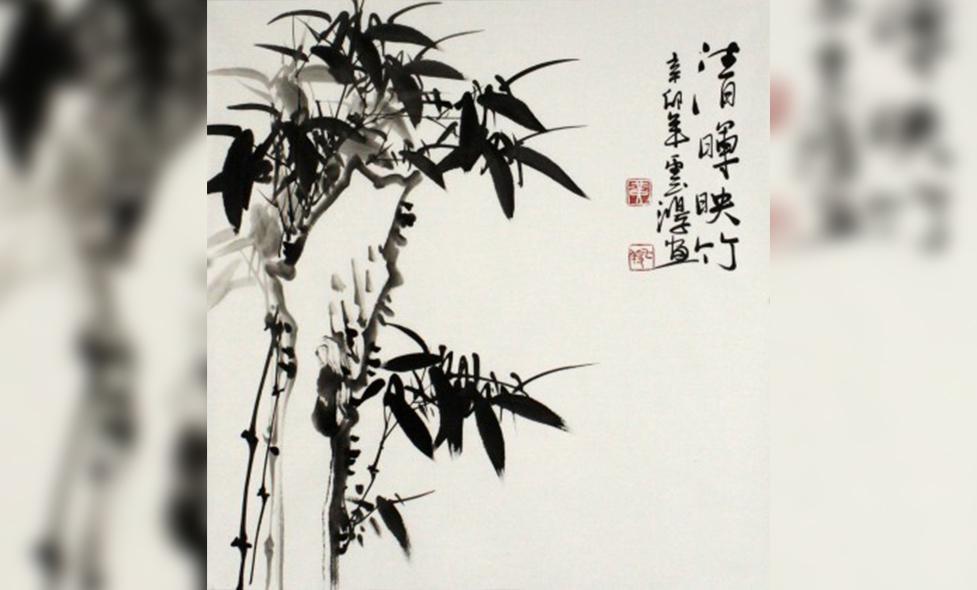 清暉映竹
辛卯年雲画